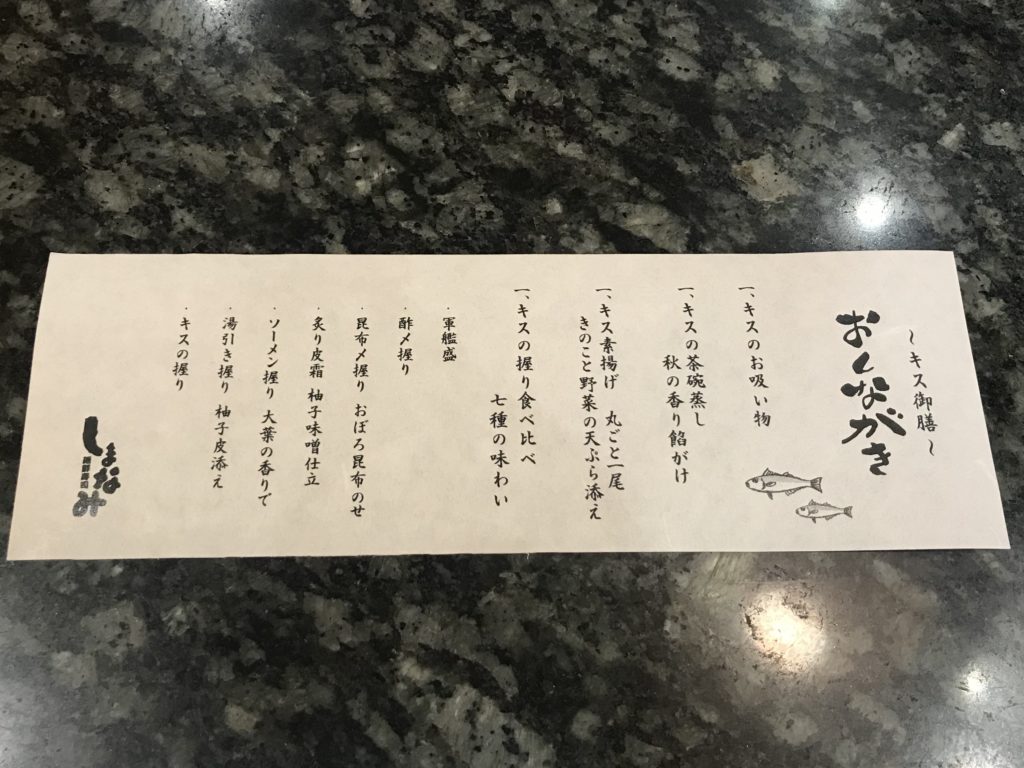 ~キス御膳~
おしながき
一、キスのお吸い物
一、キスの茶碗蒸し
秋の香り餡がけ
一、キス素揚げ 丸ごと一尾
きのこと野菜の天ぷら添え
一、キスの握り食べ比べ
七種の味わい
・軍艦盛
・酢〆握り
・昆布〆握り おぼろ昆布のせ
・炙り皮霜 柚子味噌仕立
・ソーメン握り 大葉の香りで
・湯引き握り 柚子皮添え
・キスの握り
しまなみ